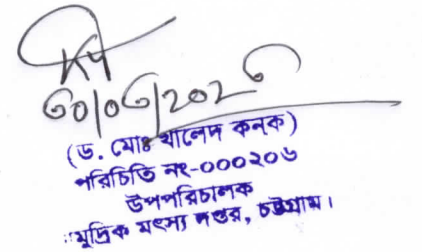 (ড. মোঃ খালেদ কনক)
পরিচিতি নং-০০০২০৬
উপপরিচালক
মুদ্রিক মৎস্য দপ্তর, চট্টগ্রাম।